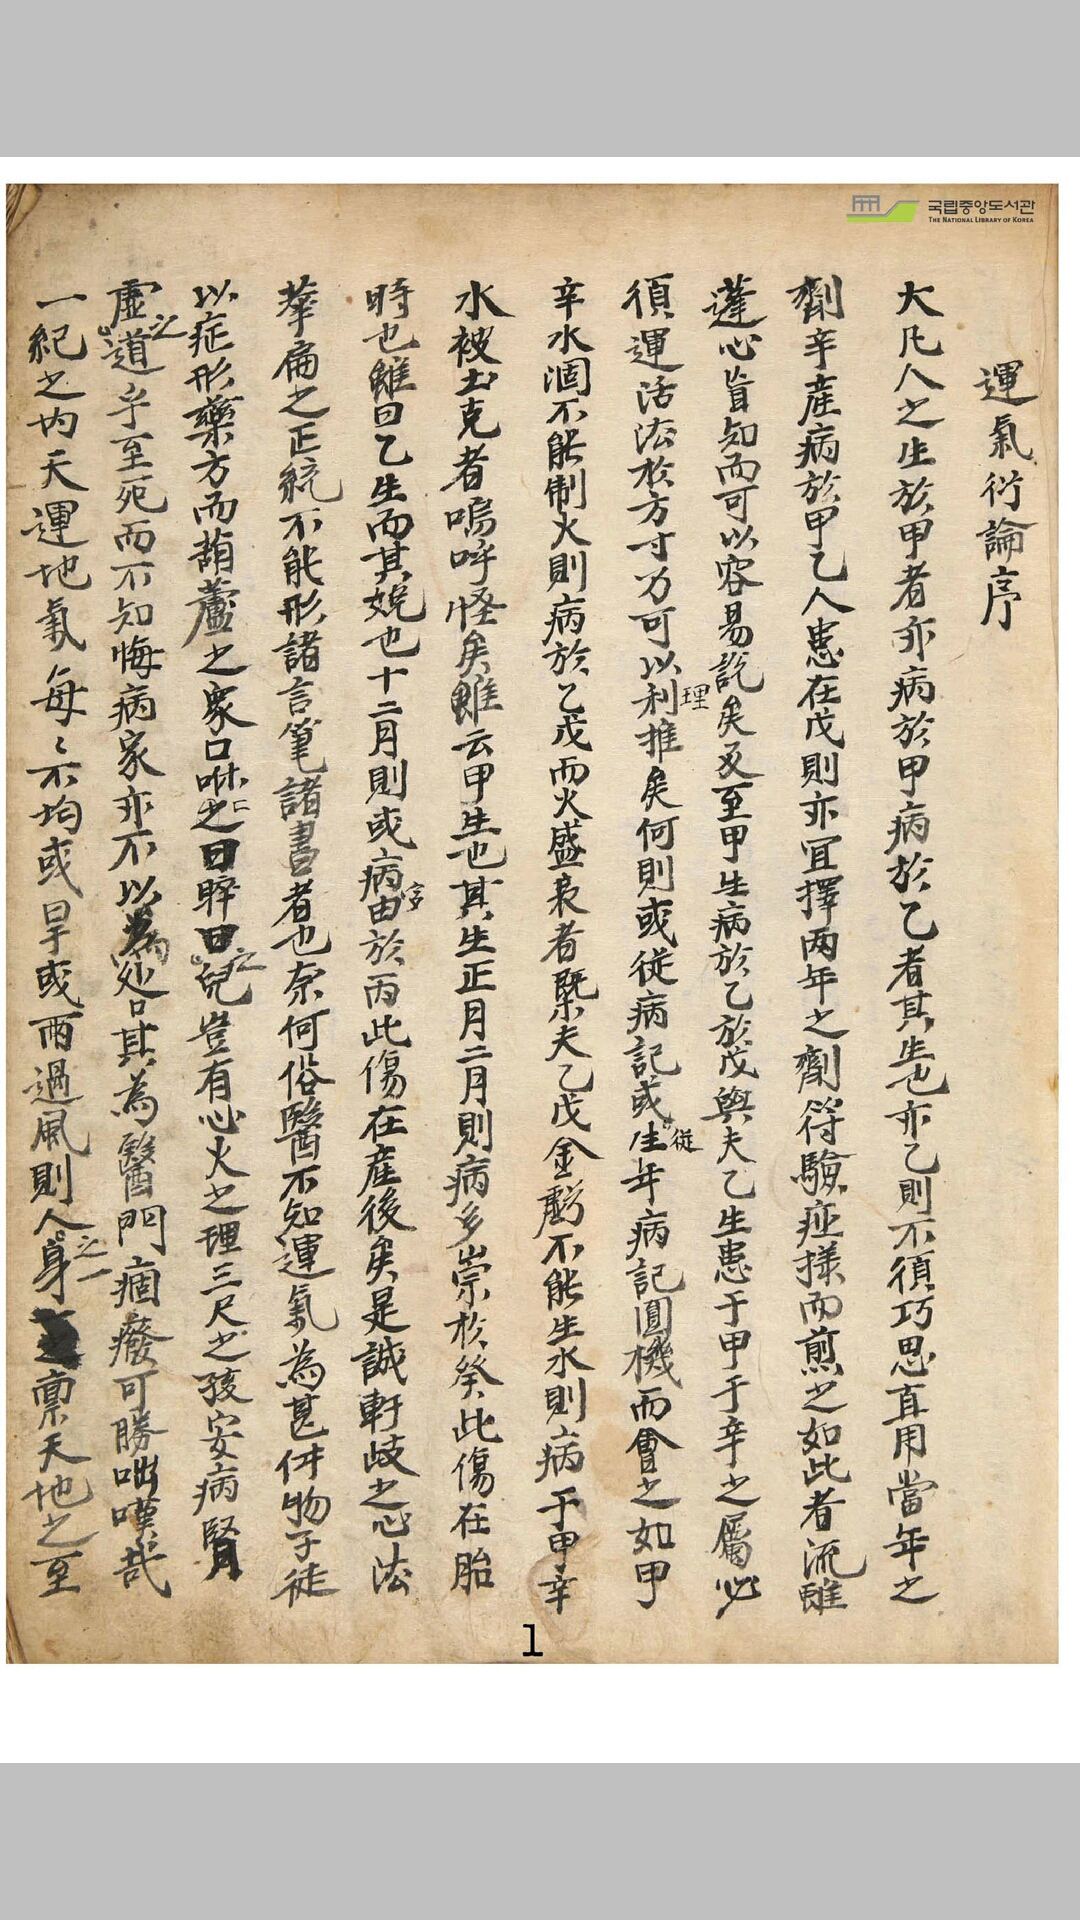 국립중앙도서관
THE NATIONAL LIBRARY OF KOREA
運氣衍論序
大凡人之生於甲者亦病於甲病於乙者其生也亦乙則不須巧思直用當年之
劑辛産病於甲乙人患在戊則亦宜擇兩年之劑符驗症様而煎之如此者流雖
蓬心皆知而可以容易說矣及至甲生病於乙於戊與夫乙生患于甲于辛之屬必
須運活法於方寸乃可以利理推矣何則或從病記或從生年病記圓機而會之如甲
辛水涸不能制火則病於乙戊而火盛衰者槩夫乙戊金虧不能生水則病于甲辛
水被土克者嗚呼怪矣雖云甲生也其生正月二月則病多崇於癸此傷在胎
時也雖曰乙生而其娩也十二月則或病由於丙此傷在産後矣是誠軒岐之心法
華扁之正統不能形諸言筆諸書者也奈何俗醫不知運氣為甚件物子徒
以症形藥方而葫蘆之衆口咻之曰之兒豈有心火之理三尺之孩安病腎
虛之道乎至死而不知悔病家亦不以為咎其為醫門痼癈可勝咄嘆哉
一紀之内天運地氣每〻不均或旱或雨過風則人身之一禀天地之至
1